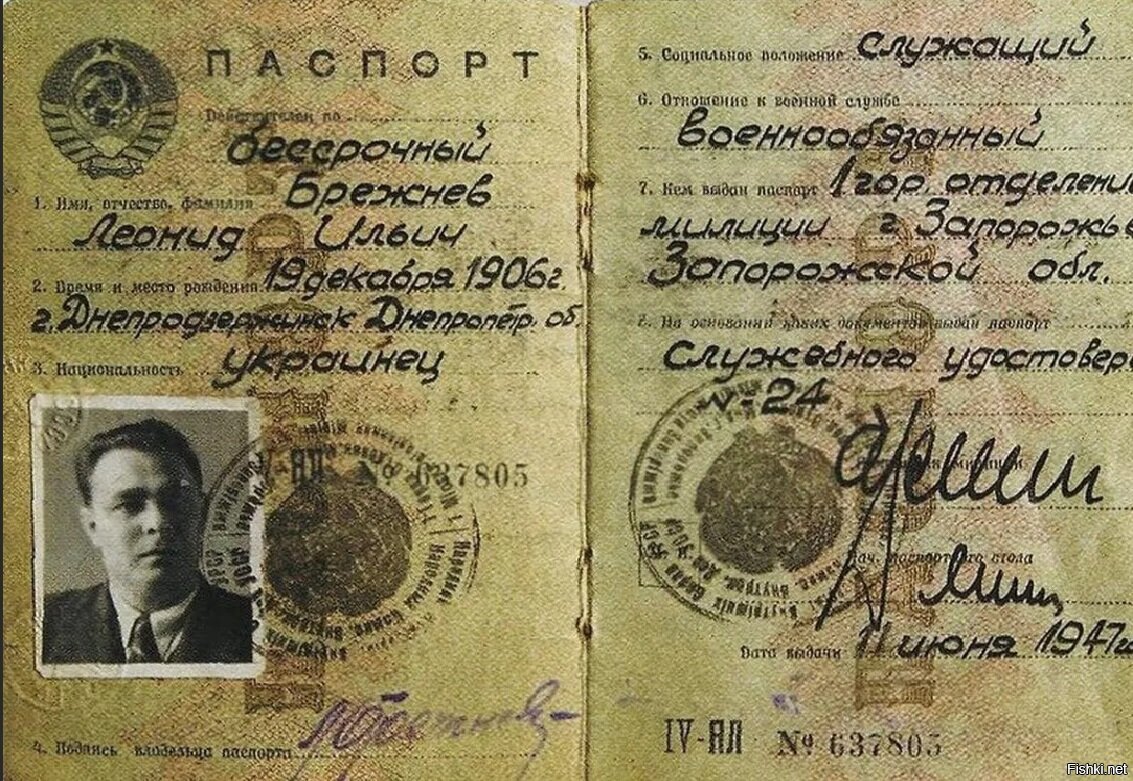 ПАСПОРТ
Действителен по
бессрочный
1. Имя, отчество, фамилия Брежнев
Леонид Ильич
2. Время и место рождения 19 декабря 1906 г.
г. Днепродзержинск Днепропетр. об.
3. Национальность украинец
IV-ЯЛ № 637805
4. Подпись владельца паспорта
5. Социальное положение служащий
6. Отношение к военной службе
военнообязанный
7. Кем выдан паспорт 1 гор. отделени
милиции г Запорожье
Запорожской обл.
8. На основании каких документов выдан паспорт
служебного удостовер
V-24
Нач. паспортного стола
Дата выдачи 11 июня 1947 г.
IV-ЯЛ № 637805
Fishki.net